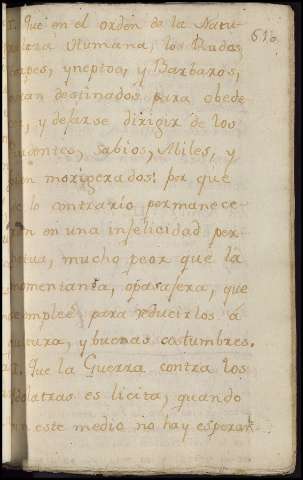 I. Que en el orden de la Natu-
raleza Humana, los Rudos, 616.
torpes, yneptos, y Barbaros,
eran destinados para obede-
cer, y dejarse dirigir de los
Prudentes, Sabios, Abiles, y
bien morigerados; por que
de lo contrario permanece-
rian en una infelicidad per-
petua, mucho peor que la
momentanea, ó pasajera, que
se emplee para reducirlos á
cultura, y buenas costumbres.
II. Que la Guerra contra los
Idolatras es licita, quando
sin este medio no hay esperan-